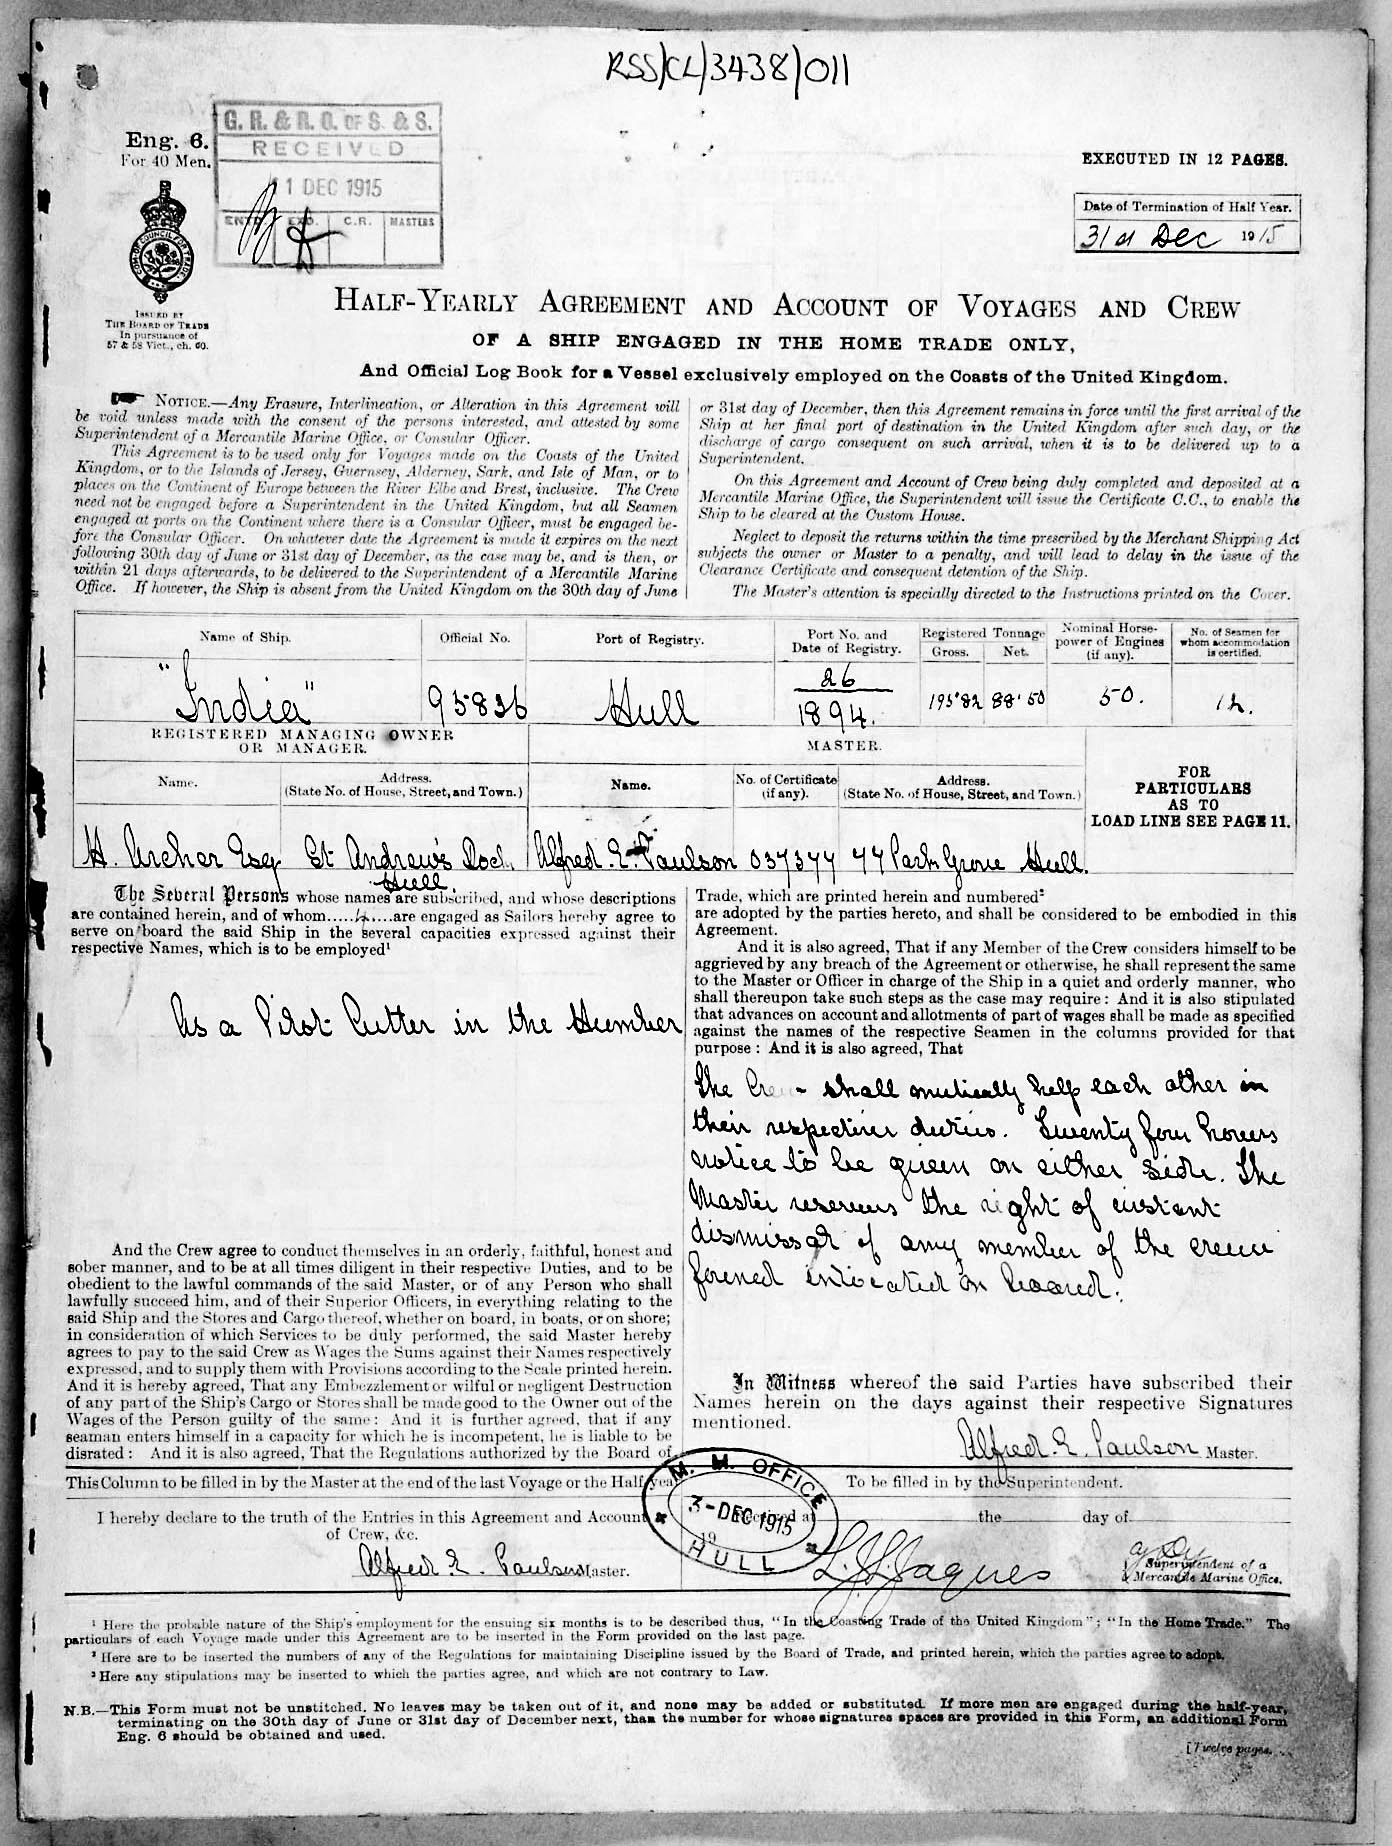 RSS/CL/3438/011
G. R. & R. O. OF S. & S.
RECEIVED
11 DEC 1915
ENTD EXD. C.R. MASTERS
Eng. 6.
For 40 Men.
EXECUTED IN 12 PAGES.
Date of Termination of Half Year.
31st Dec 1915
ISSUED BY
THE BOARD OF TRADE
In pursuance of
57 & 58 Vict., ch. 60.
HALF-YEARLY AGREEMENT AND ACCOUNT OF VOYAGES AND CREW
OF A SHIP ENGAGED IN THE HOME TRADE ONLY,
And Official Log Book for a Vessel exclusively employed on the Coasts of the United Kingdom.
NOTICE.—Any Erasure, Interlineation, or Alteration in this Agreement will
be void unless made with the consent of the persons interested, and attested by some
Superintendent of a Mercantile Marine Office, or Consular Officer.
This Agreement is to be used only for Voyages made on the Coasts of the United
Kingdom, or to the Islands of Jersey, Guernsey, Alderney, Sark, and Isle of Man, or to
places on the Continent of Europe between the River Elbe and Brest, inclusive. The Crew
need not be engaged before a Superintendent in the United Kingdom, but all Seamen
engaged at ports on the Continent where there is a Consular Officer, must be engaged be-
fore the Consular Officer. On whatever date the Agreement is made it expires on the next
following 30th day of June or 31st day of December, as the case may be, and is then, or
within 21 days afterwards, to be delivered to the Superintendent of a Mercantile Marine
Office. If however, the Ship is absent from the United Kingdom on the 30th day of June
or 31st day of December, then this Agreement remains in force until the first arrival of the
Ship at her final port of destination in the United Kingdom after such day, or the
discharge of cargo consequent on such arrival, when it is to be delivered up to a
Superintendent.
On this Agreement and Account of Crew being duly completed and deposited at a
Mercantile Marine Office, the Superintendent will issue the Certificate C.C., to enable the
Ship to be cleared at the Custom House.
Neglect to deposit the returns within the time prescribed by the Merchant Shipping Act
subjects the owner or Master to a penalty, and will lead to delay in the issue of the
Clearance Certificate and consequent detention of the Ship.
The Master's attention is specially directed to the Instructions printed on the Cover.
Name of Ship. Official No. Port of Registry. Port No. and Date of Registry. Registered Tonnage Gross. Net. Nominal Horse-power of Engines (if any). No. of Seamen for whom accommodation is certified.
"India" 95836 Hull 26/1894. 195'82 88'50 50. 12.
REGISTERED MANAGING OWNER
OR MANAGER.
MASTER.
Name. Address. (State No. of House, Street, and Town.) Name. No. of Certificate (if any). Address. (State No. of House, Street, and Town.)
FOR
PARTICULARS
AS TO
LOAD LINE SEE PAGE 11.
H. Archer Esq St Andrew's Dock Hull. Alfred. E. Paulson 037377 77 Park Grove Hull.
The Several Persons whose names are subscribed, and whose descriptions
are contained herein, and of whom.....4....are engaged as Sailors hereby agree to
serve on board the said Ship in the several capacities expressed against their
respective Names, which is to be employed¹
As a Pilot Cutter in the Humber
And the Crew agree to conduct themselves in an orderly, faithful, honest and
sober manner, and to be at all times diligent in their respective Duties, and to be
obedient to the lawful commands of the said Master, or of any Person who shall
lawfully succeed him, and of their Superior Officers, in everything relating to the
said Ship and the Stores and Cargo thereof, whether on board, in boats, or on shore;
in consideration of which Services to be duly performed, the said Master hereby
agrees to pay to the said Crew as Wages the Sums against their Names respectively
expressed, and to supply them with Provisions according to the Scale printed herein.
And it is hereby agreed, That any Embezzlement or wilful or negligent Destruction
of any part of the Ship's Cargo or Stores shall be made good to the Owner out of the
Wages of the Person guilty of the same: And it is further agreed, that if any
seaman enters himself in a capacity for which he is incompetent, he is liable to be
disrated: And it is also agreed, That the Regulations authorized by the Board of
Trade, which are printed herein and numbered²
are adopted by the parties hereto, and shall be considered to be embodied in this
Agreement.
And it is also agreed, That if any Member of the Crew considers himself to be
aggrieved by any breach of the Agreement or otherwise, he shall represent the same
to the Master or Officer in charge of the Ship in a quiet and orderly manner, who
shall thereupon take such steps as the case may require: And it is also stipulated
that advances on account and allotments of part of wages shall be made as specified
against the names of the respective Seamen in the columns provided for that
purpose: And it is also agreed, That
The Crew shall mutically help each other in
their respective duties. Twenty four hours
notice to be given on either side. The
Master reserves the right of instant
dismissal of any member of the crew
found intoxicated on board.
In Witness whereof the said Parties have subscribed their
Names herein on the days against their respective Signatures
mentioned.
Alfred. E. Paulson Master.
This Column to be filled in by the Master at the end of the last Voyage or the Half year
To be filled in by the Superintendent.
I hereby declare to the truth of the Entries in this Agreement and Account
of Crew, &c.
Alfred E. Paulson Master.
M. M. OFFICE
3-DEC 1915
HULL
Received at the day of
19
L. J. Jaques
Superintendent of a
Mercantile Marine Office.
¹ Here the probable nature of the Ship's employment for the ensuing six months is to be described thus, "In the Coasting Trade of the United Kingdom"; "In the Home Trade." The
particulars of each Voyage made under this Agreement are to be inserted in the Form provided on the last page.
² Here are to be inserted the numbers of any of the Regulations for maintaining Discipline issued by the Board of Trade, and printed herein, which the parties agree to adopt.
³ Here any stipulations may be inserted to which the parties agree, and which are not contrary to Law.
N.B.—This Form must not be unstitched. No leaves may be taken out of it, and none may be added or substituted. If more men are engaged during the half-year,
terminating on the 30th day of June or 31st day of December next, than the number for whose signatures spaces are provided in this Form, an additional Form
Eng. 6 should be obtained and used.
[Twelve pages.